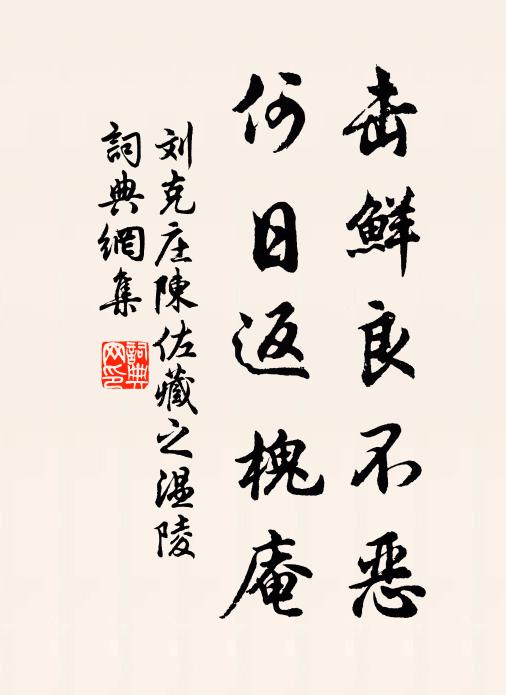 击鲜良不恶
何日返槐庵
刘克庄陳佐藏之温陵
詞典網集
詞典网印